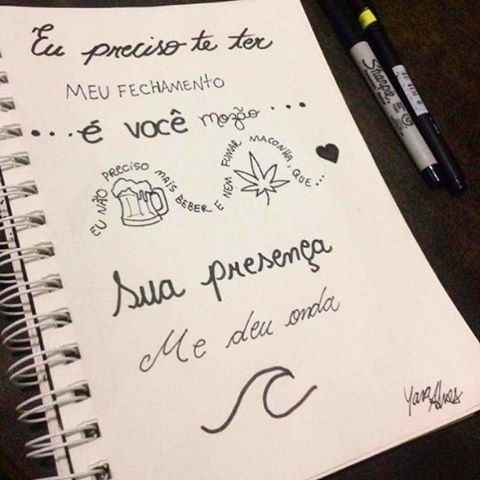 Eu preciso te ter
MEU FECHAMENTO
...é você mozão...
EU NÃO PRECISO MAIS BEBER E NEM FUMAR MACONHA, QUE...
Sua presença
Me deu onda
Yara Alves
Sharpie